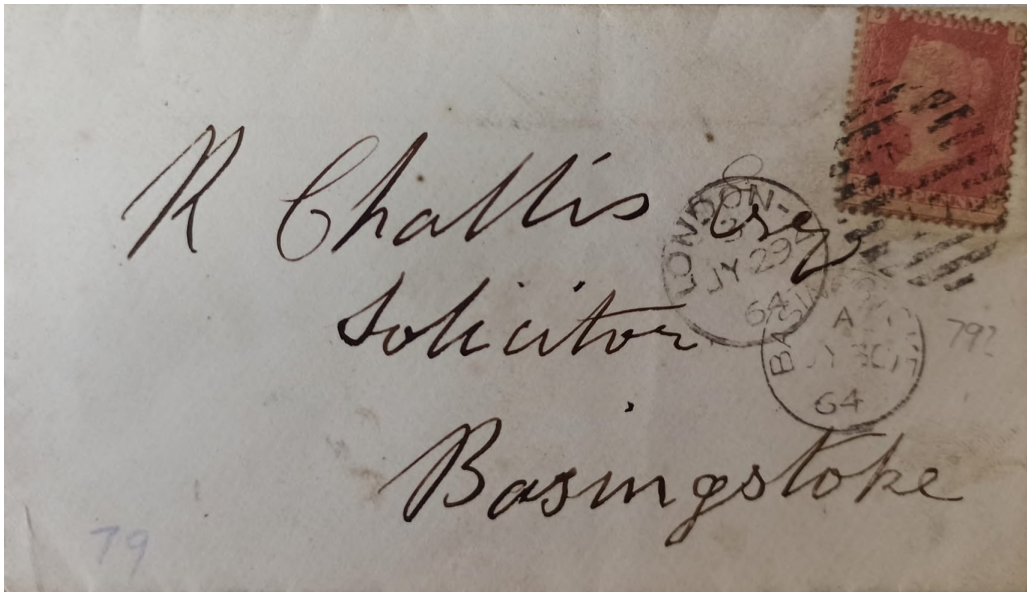 R Challis Esq
Solicitor
Basingstoke
LONDON
JY 29
64
BASINGSTOKE
A
JY 30
64
79